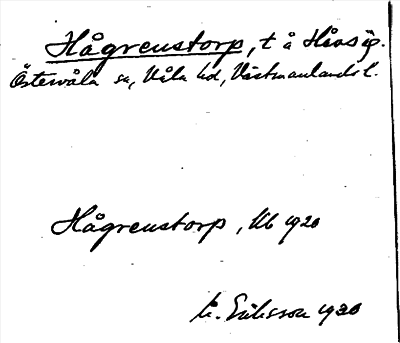 Hågrenstorp, t å Håvsäg.
Östervåla sn, Våla hd, Västmanlands l.
Hågrenstorp, Ub 1920
M. Eriksson 1930